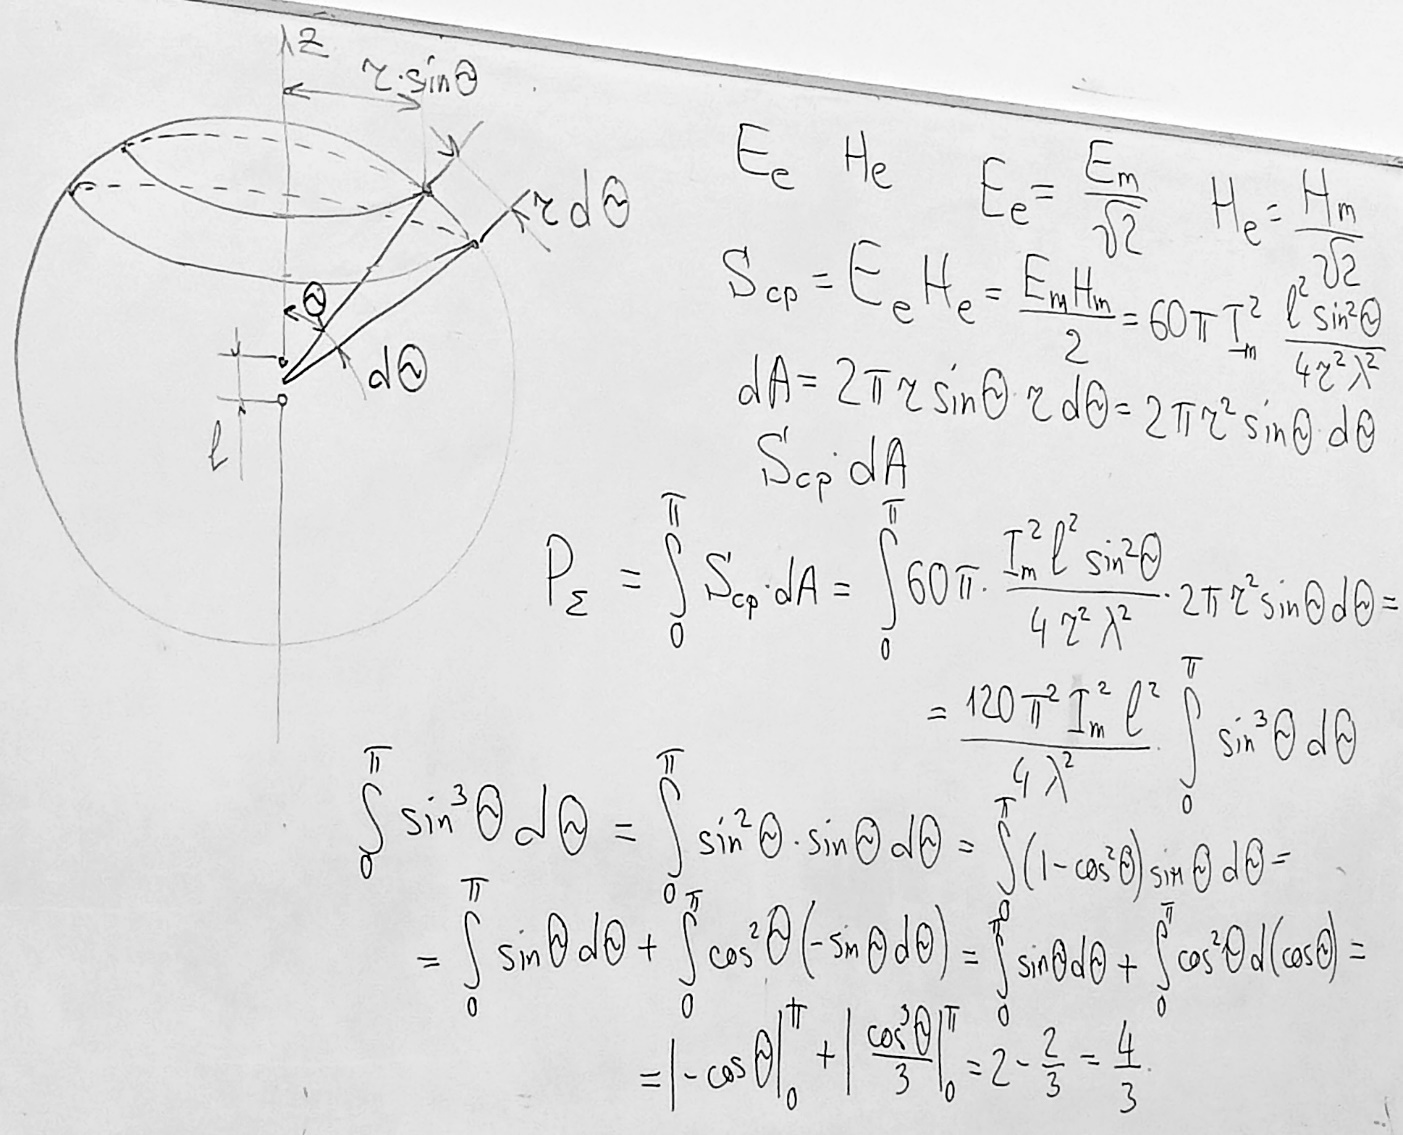 z
r·sinΘ
r dΘ
Θ
dΘ
l
E_e H_e E_e = E_m/√2 H_e = H_m/√2
S_ср = E_e H_e = E_m H_m/2 = 60π I_m² l² sin²Θ/4r²λ²
dA = 2π r sinΘ · r dΘ = 2π r² sinΘ · dΘ
S_ср · dA
P_Σ = ∫₀^π S_ср · dA = ∫₀^π 60π · I_m² l² sin²Θ/4r²λ² · 2π r² sinΘ dΘ =
= 120π² I_m² l²/4λ² · ∫₀^π sin³Θ dΘ
∫₀^π sin³Θ dΘ = ∫₀^π sin²Θ · sinΘ dΘ = ∫₀^π (1-cos²Θ) sinΘ dΘ =
= ∫₀^π sinΘ dΘ + ∫₀^π cos²Θ (-sinΘ dΘ) = ∫₀^π sinΘ dΘ + ∫₀^π cos²Θ d(cosΘ) =
= |-cosΘ|₀^π + |cos³Θ/3|₀^π = 2 - 2/3 = 4/3.